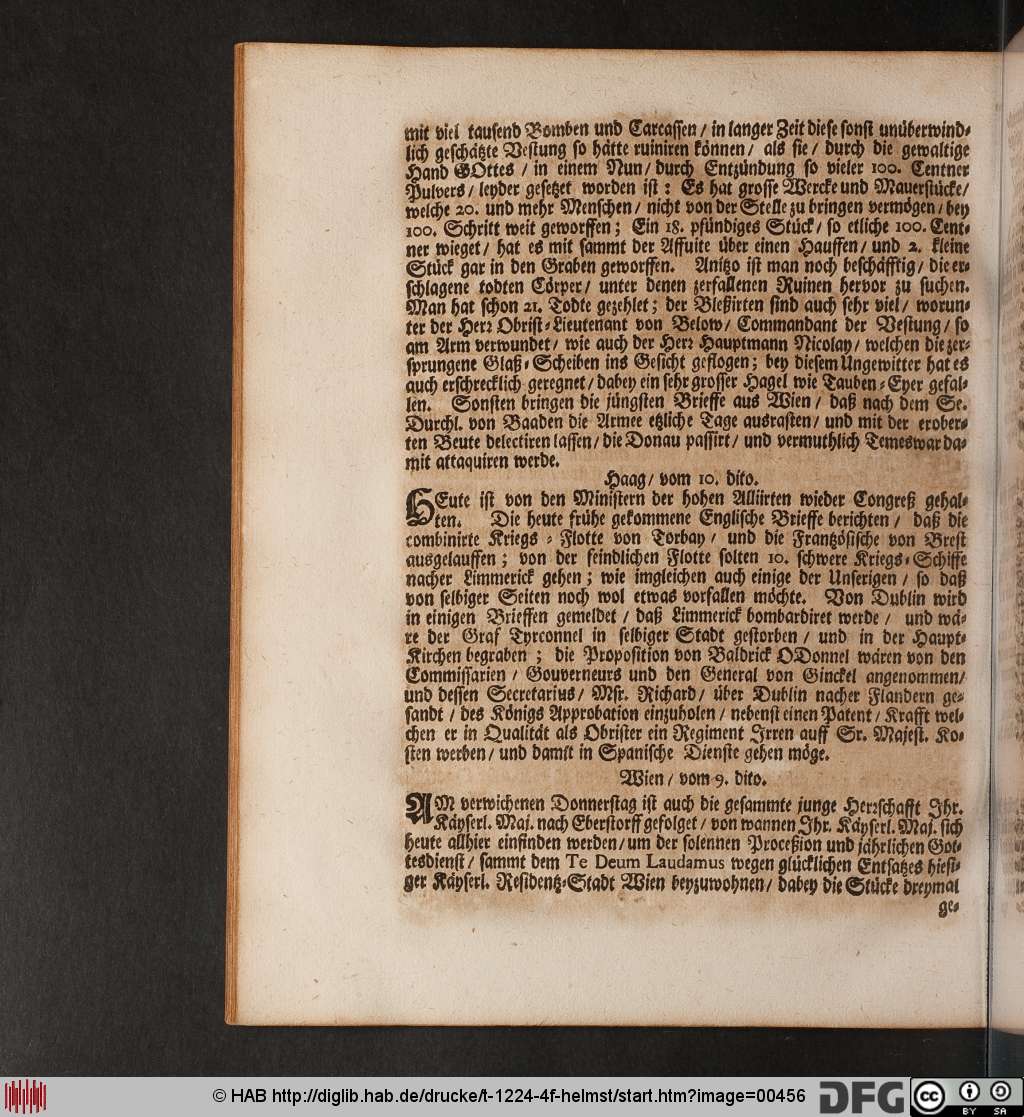 mit viel tausend Bomben und Carcassen / in langer Zeit diese sonst unüberwind-
lich geschätzte Vestung so hätte ruiniren können / als sie / durch die gewaltige
Hand GOttes / in einem Nun / durch Entzündung so vieler 100. Centner
Pulvers / leyder gesetzet worden ist : Es hat grosse Wercke und Mauerstücke /
welche 20. und mehr Menschen / nicht von der Stelle zu bringen vermögen / bey
100. Schritt weit geworffen ; Ein 18. pfündiges Stück / so etliche 100. Cent-
ner wieget / hat es mit sammt der Affuite über einen Hauffen / und 2. kleine
Stück gar in den Graben geworffen. Anitzo ist man noch beschäfftig / die er-
schlagene todten Cörper / unter denen zerfallenen Ruinen hervor zu suchen.
Man hat schon 21. Todte gezehlet ; der Bleßirten sind auch sehr viel / worun-
ter der Herr Obrist-Lieutenant von Below / Commandant der Vestung / so
am Arm verwundet / wie auch der Herr Hauptmann Nicolay / welchen die zer-
sprungene Glaß-Scheiben ins Gesicht geflogen ; bey diesem Ungewitter hat es
auch erschrecklich geregnet / dabey ein sehr grosser Hagel wie Tauben-Eyer gefal-
len. Sonsten bringen die jüngsten Brieffe aus Wien / daß nach dem Se.
Durchl. von Baaden die Armee etzliche Tage ausrasten / und mit der erober-
ten Beute delectiren lassen / die Donau passirt / und vermuthlich Temeswar da-
mit attaquiren werde.
Haag / vom 10. dito.
HEute ist von den Ministern der hohen Alliirten wieder Congreß gehal-
ten. Die heute frühe gekommene Englische Brieffe berichten / daß die
combinirte Kriegs-Flotte von Torbay / und die Frantzösische von Brest
ausgelauffen ; von der feindlichen Flotte solten 10. schwere Kriegs-Schiffe
nacher Limmerick gehen ; wie imgleichen auch einige der Unserigen / so daß
von selbiger Seiten noch wol etwas vorfallen möchte. Von Dublin wird
in einigen Brieffen gemeldet / daß Limmerick bombardiret werde / und wä-
re der Graf Tyrconnel in selbiger Stadt gestorben / und in der Haupt-
Kirchen begraben ; die Proposition von Baldrick ODonnel wären von den
Commissarien / Gouverneurs und den General von Ginckel angenommen /
und dessen Secretarius / Msr. Richard / über Dublin nacher Flandern ge-
sandt / des Königs Approbation einzuholen / nebenst einen Patent / Krafft wel-
chen er in Qualität als Obrister ein Regiment Irren auff Sr. Majest. Ko-
sten werben / und damit in Spanische Dienste gehen möge.
Wien / vom 9. dito.
AM verwichenen Donnerstag ist auch die gesammte junge Herrschafft Ihr.
Käyserl. Maj. nach Eberstorff gefolget / von wannen Ihr. Käyserl. Maj. sich
heute allhier einfinden werden / um der solennen Proceßion und jährlichen Got-
tesdienst / sammt dem Te Deum Laudamus wegen glücklichen Entsatzes hiesi-
ger Käyserl. Residentz-Stadt Wien beyzuwohnen / dabey die Stücke dreymal
ge-
© HAB http://diglib.hab.de/drucke/t-1224-4f-helmst/start.htm?image=00456
DFG
cc BY SA